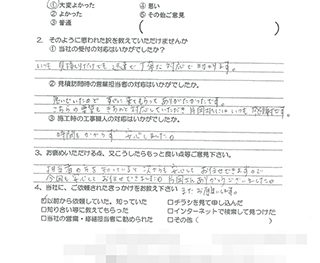 ①大変よかった ④悪い
②よかった ⑤その他ご意見
③普通 (
2. そのように思われた訳を教えていただけませんか
①当社の受付の対応はいかがでしたか?
いつも 見積りだけでも 迅速で丁寧な対応で助かります。
②見積訪問時の営業担当者の対応はいかがでしたか。
急いでいたので すぐに来てもらって ありがたかったです。
こちらの要望も
③施工時の工事職人の対応はいかがでしたか。
時間もかからず 安心しました
3. お褒めいただける点、又こうしたらもっと良い点等ご意見下さい。
担当者の方を
今回も安心してお任せできました
4. 当社に、ご依頼されたきっかけをお教え下さい またお願いします。
以前から依頼していた。知っていた □チラシを見て申し込んだ
□知り合い等に教えてもらった □インターネットで検索して見つけた
□当社の営業・修繕担当者に勧められた □その他(